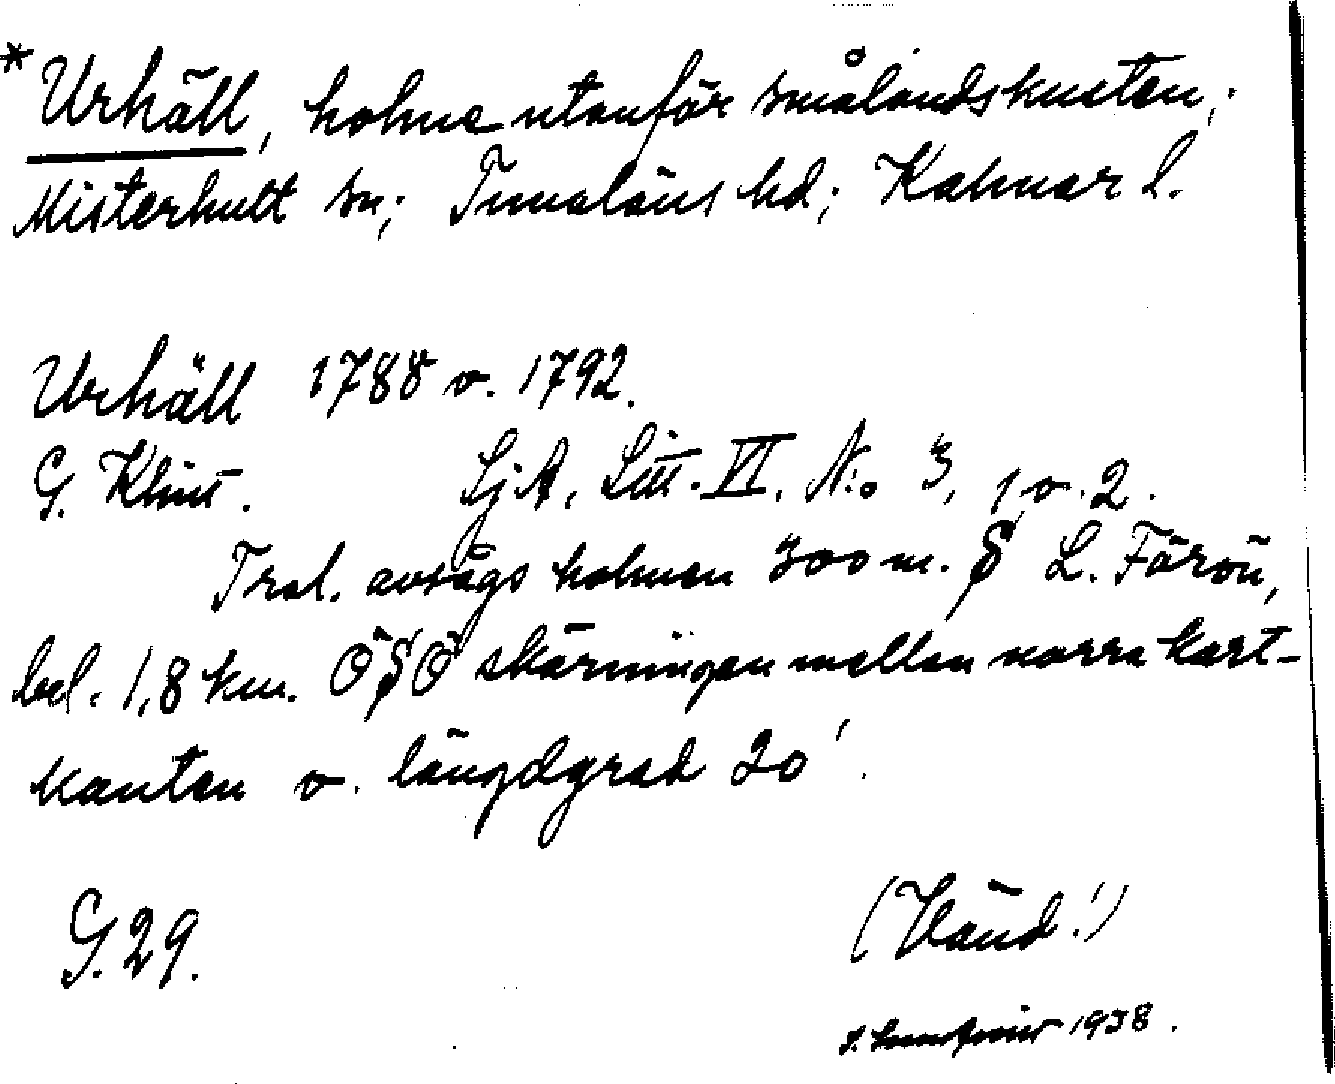 *Urhäll, holme utanför smålandskusten;
Misterhult sn; Tunaläns hd; Kalmar l.
Urhäll 1788 o. 1792.
G. Klint. SjA, Litt. VI, No 3, 1 o. 2.
Trol. avsågs holmen 300 m. S L. Färön,
bel. 1,8 km. ÖSÖ skärningen mellan norra kart-
kanten o. längdgrad 20'.
G. 29.
(Vänd!)
1938.